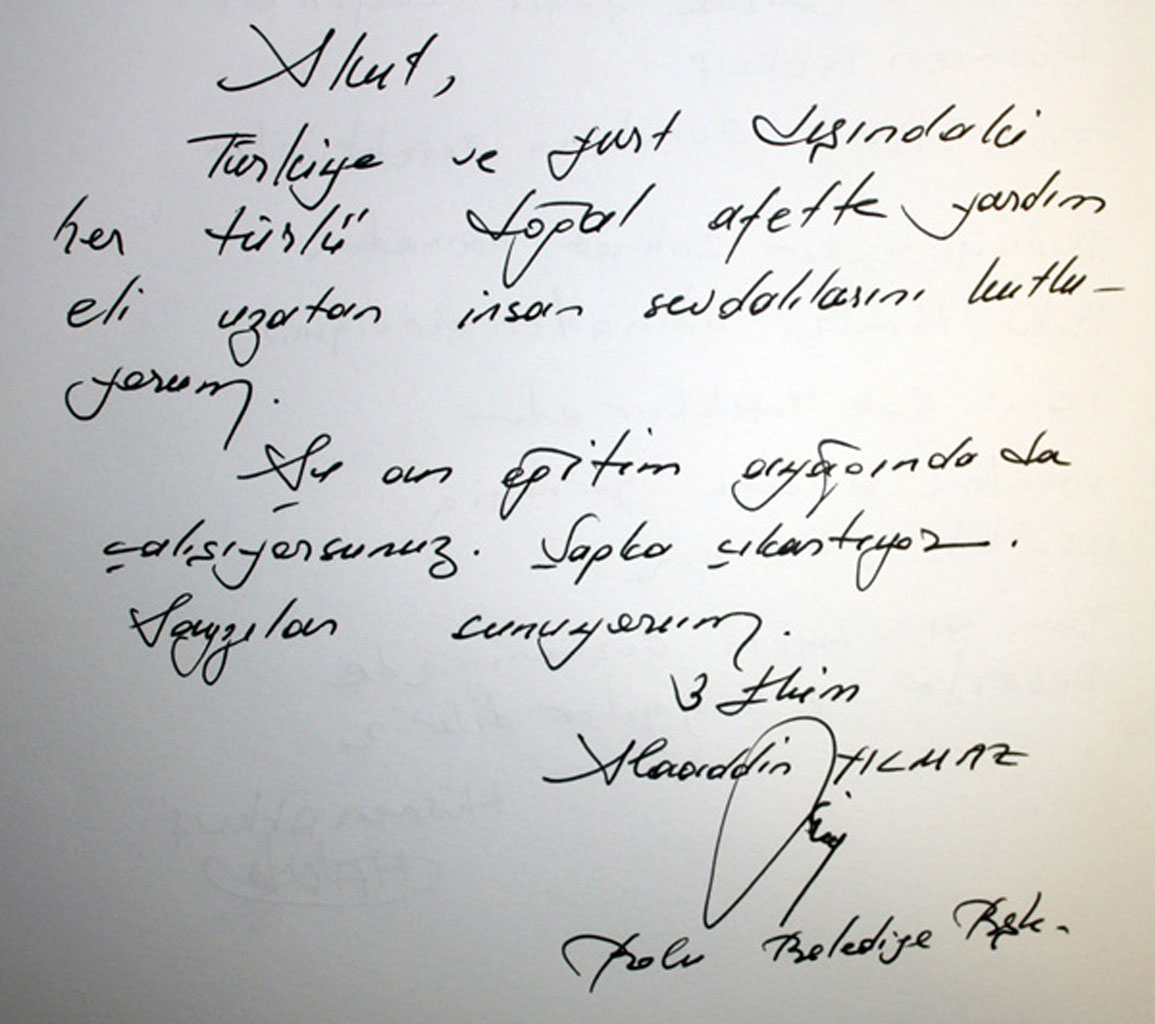 Akut,
Türkiye ve yurt dışındaki
her türlü doğal afette yardım
eli uzatan insan sevdalılarını kutlu-
yorum.
Şu an eğitim ayağında da
çalışıyorsunuz. Şapka çıkartıyoruz.
Saygılar sunuyorum.
3 Ekim
Alaaddin YILMAZ
Bolu Belediye Bşk.